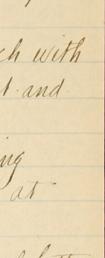 ch with
t and
ing
at